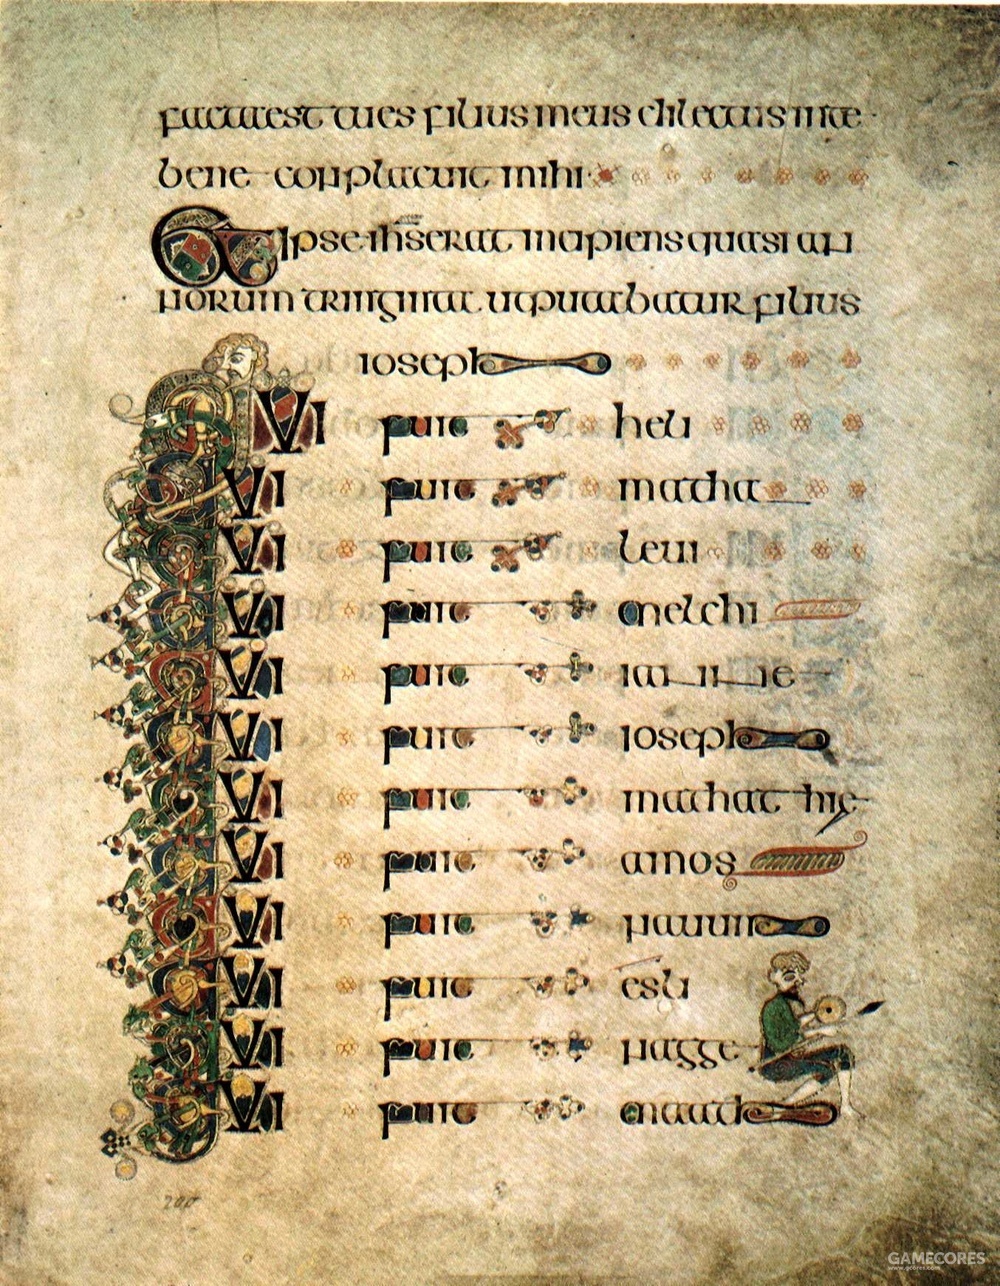 facta est tu es filius meus dilectus in te
bene conplacuit mihi
Et ipse ihs erat incipiens quasi an
norum triginta ut putabatur filius
ioseph
QVI fuit heli
QVI fuit matha
QVI fuit leui
QVI fuit melchi
QVI fuit ianne
QVI fuit ioseph
QVI fuit mathathie
QVI fuit amos
QVI fuit nauum
QVI fuit esli
QVI fuit nagge
QVI fuit maath
200
GAMECORES
www.gcores.com